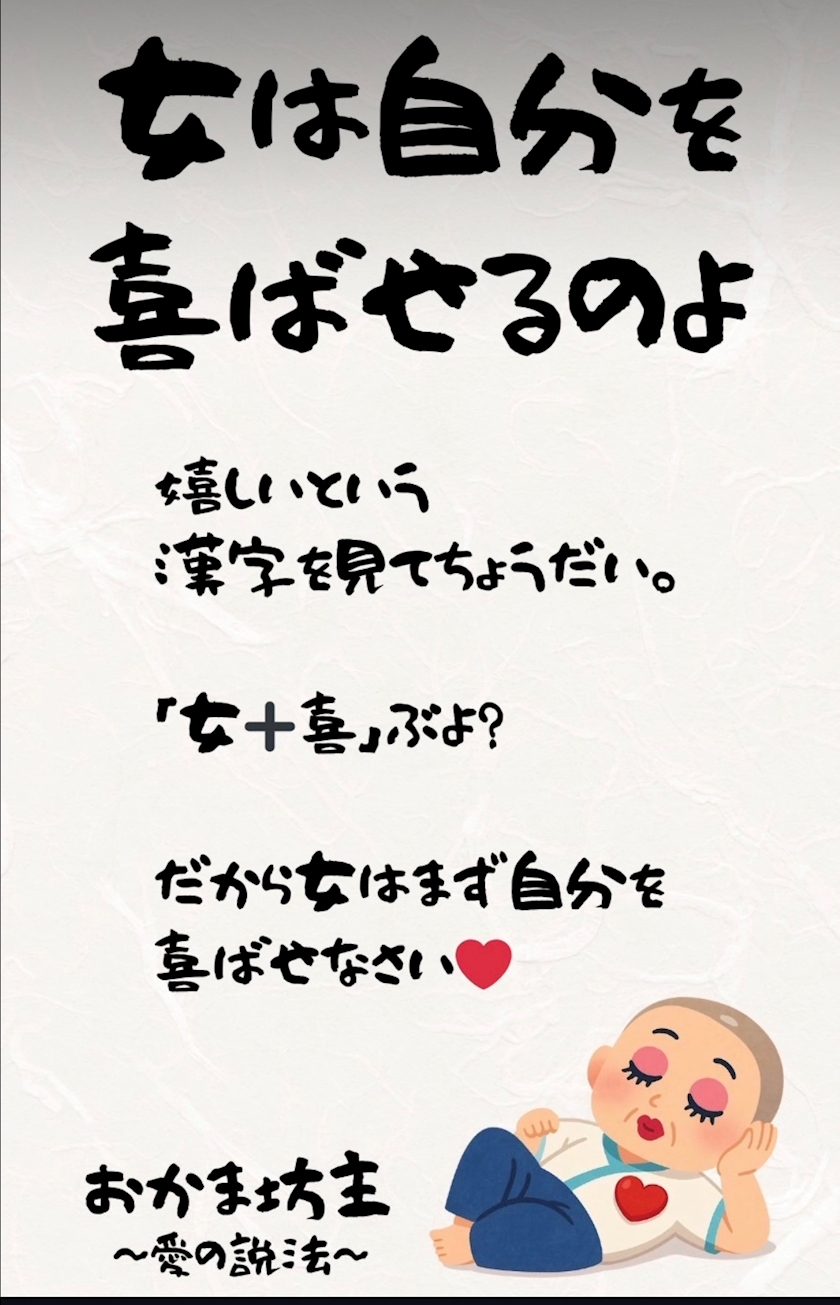 女は自分を
喜ばせるのよ
嬉しいという
漢字を見てちょうだい。
「女➕喜」ぶよ?
だから女はまず自分を
喜ばせなさい❤️
おかま坊主
〜愛の説法〜